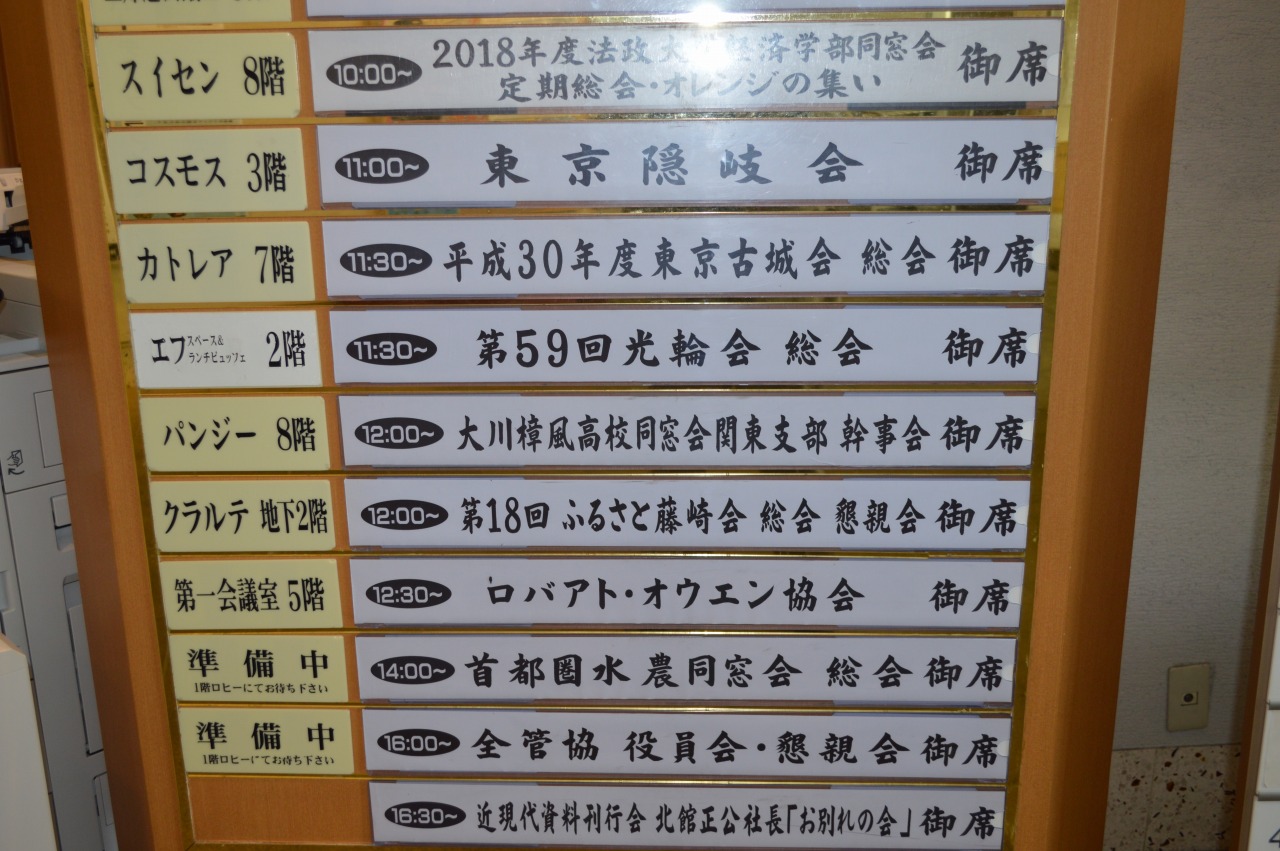 スイセン 8階
10:00~
2018年度法政大 経済学部同窓会
定期総会・オレンジの集い
御席
コスモス 3階
11:00~ 東京隠岐会 御席
カトレア 7階
11:30~ 平成30年度東京古城会 総会 御席
エフ スペース&
ランチビュッフェ
2階
11:30~ 第59回光輪会 総会 御席
パンジー 8階
12:00~ 大川樟風高校同窓会関東支部 幹事会 御席
クラルテ 地下2階
12:00~ 第18回 ふるさと藤崎会 総会 懇親会 御席
第一会議室 5階
12:30~ ロバアト・オウエン協会 御席
準備中
1階ロビーにてお待ち下さい
14:00~ 首都圏水農同窓会 総会 御席
準備中
1階ロビーにてお待ち下さい
16:00~ 全管協 役員会・懇親会 御席
16:30~ 近現代資料刊行会 北館正公社長「お別れの会」 御席